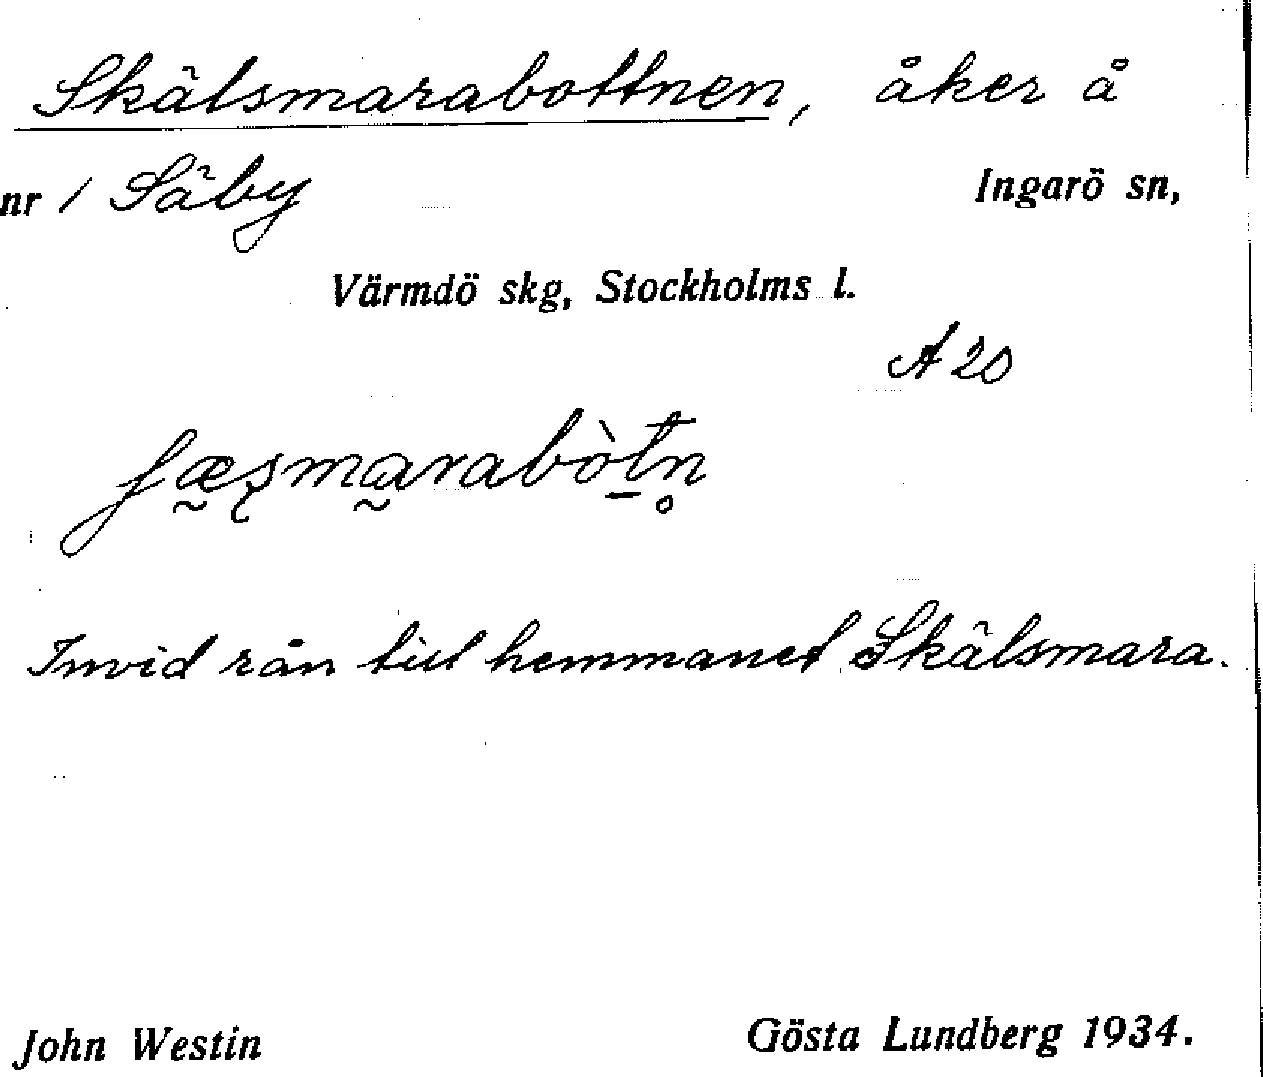 Skälsmarabottnen, åker å
nr 1 Säby Ingarö sn,
Värmdö skg, Stockholms l.
A 20
Invid rån till hemmanet Skälsmara.
John Westin Gösta Lundberg 1934.